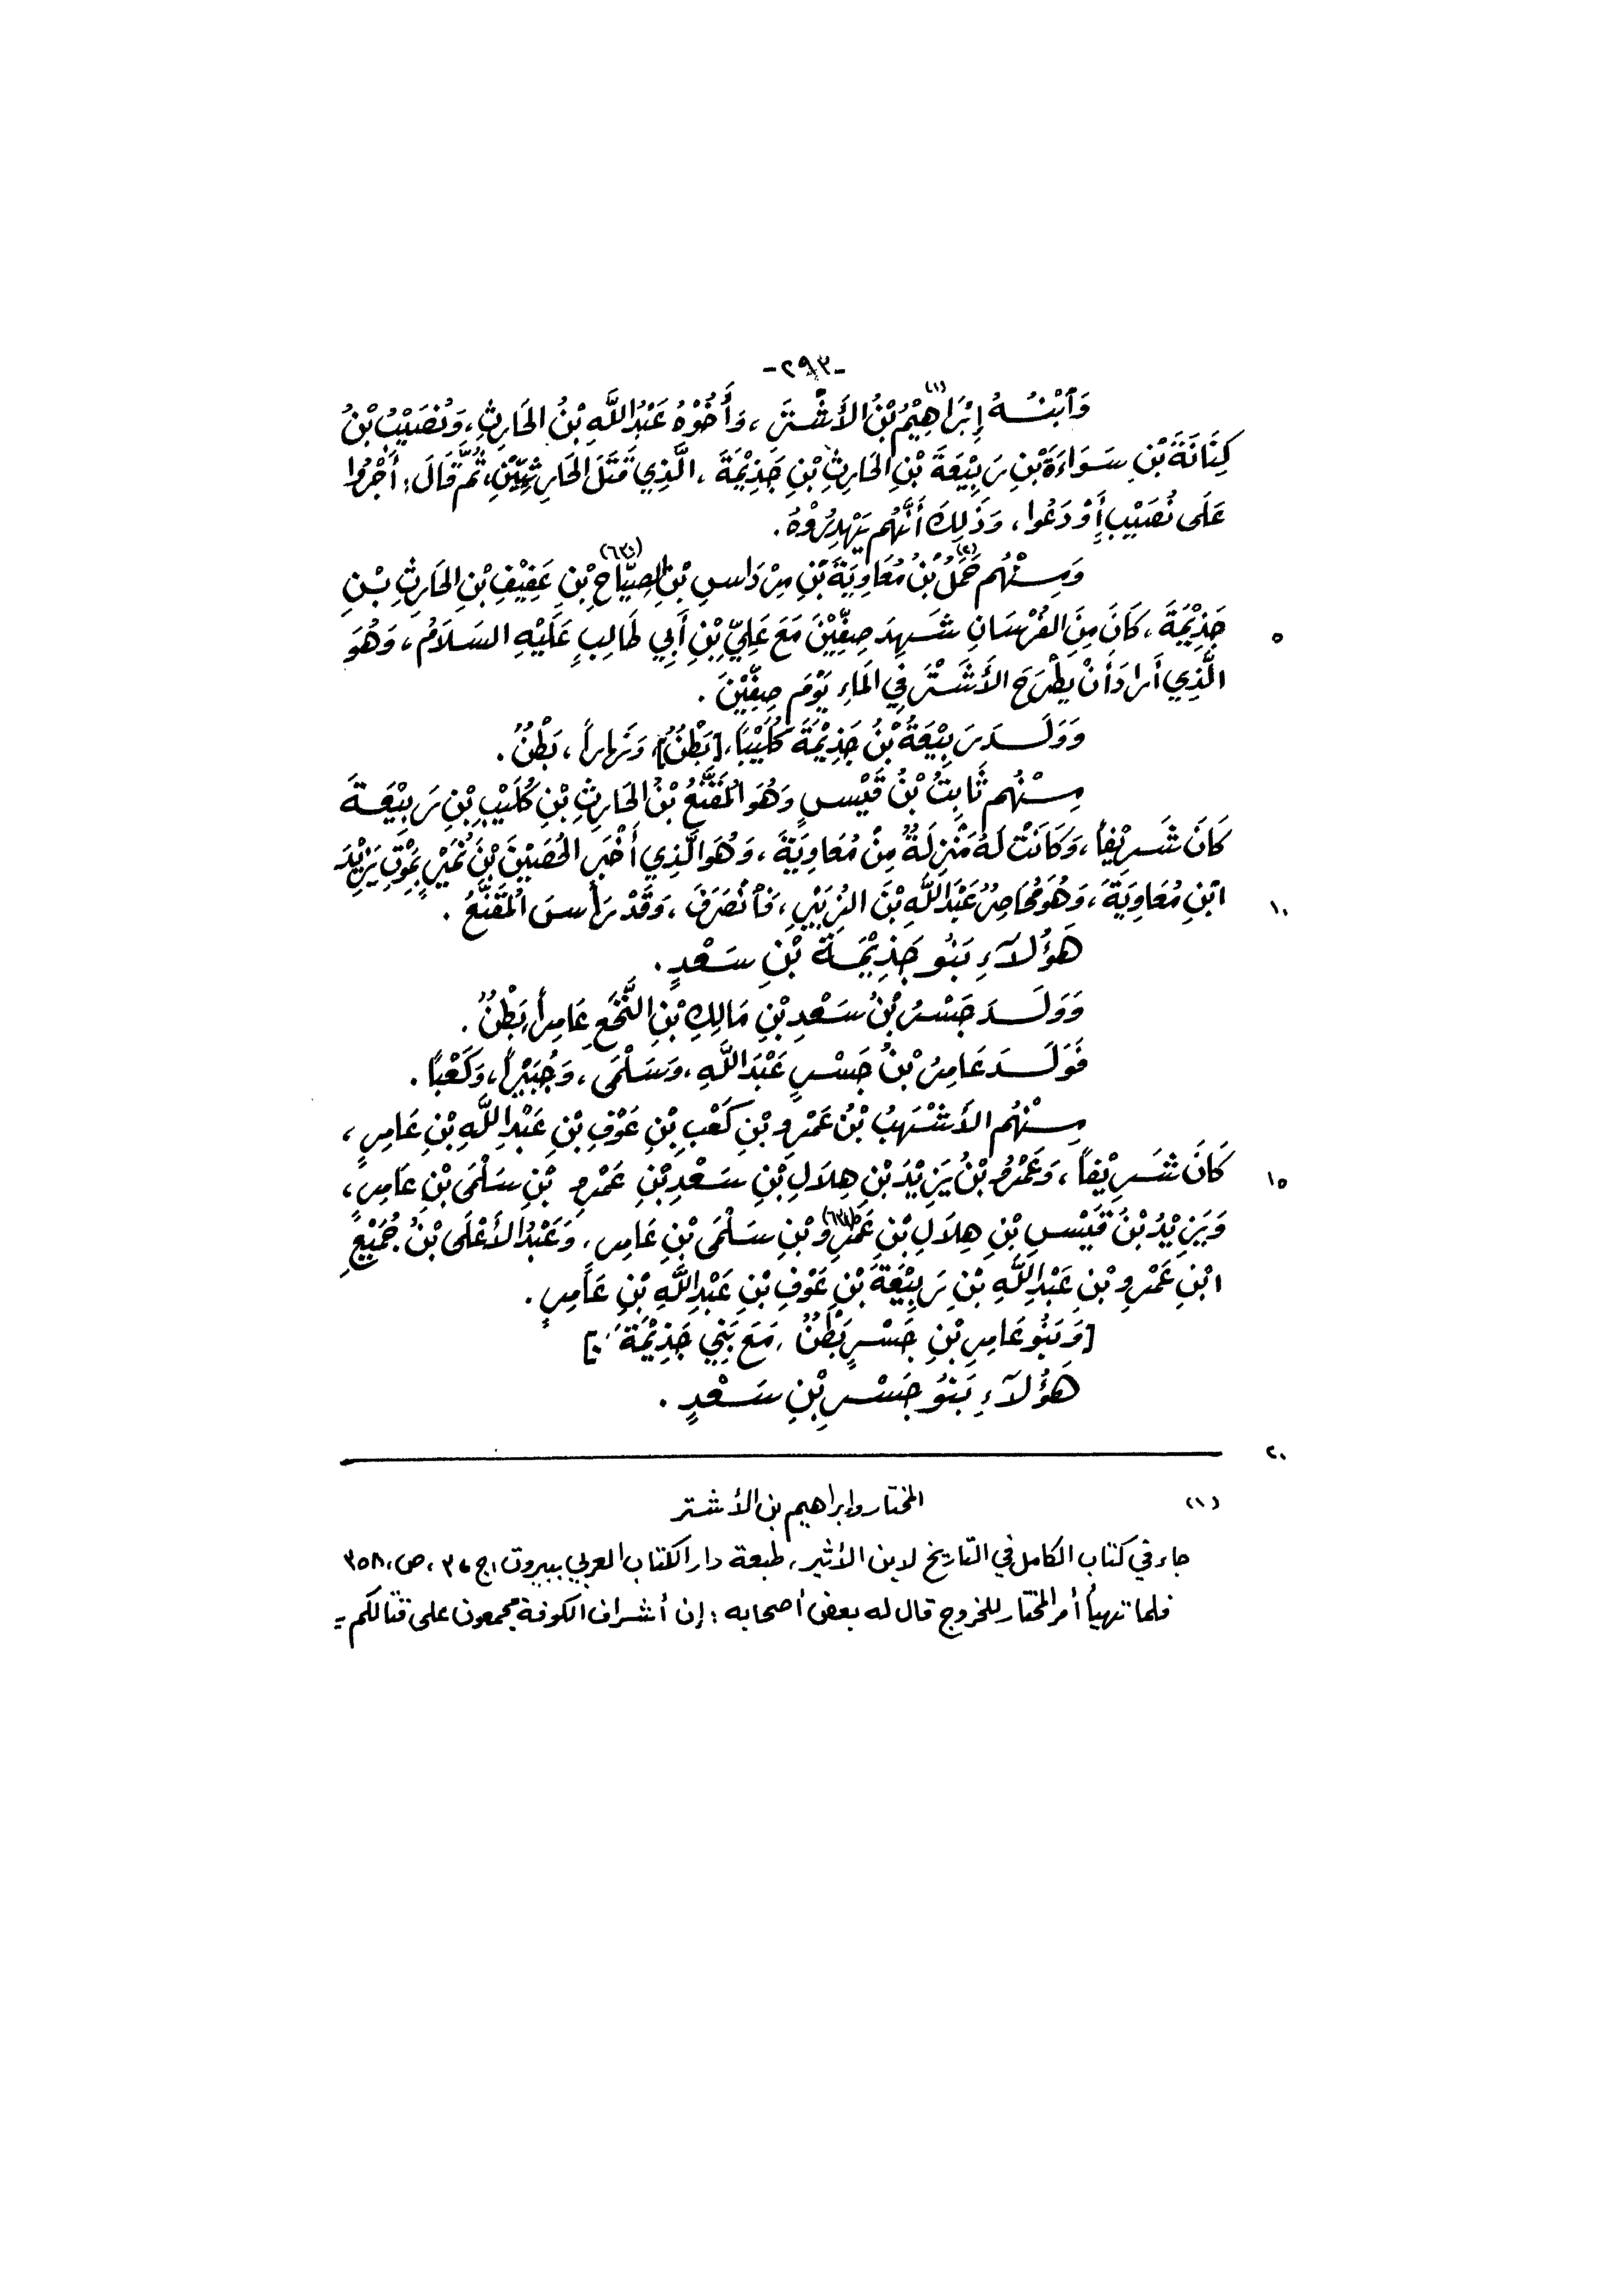 -٢٩٣-
وَٱبْنُـهُ إِبْرَاهِيْمُ (١) بْنُ الأَشْتَرِ ، وَأَخُوْهُ عَبْدُ اللَّهِ بْنُ الحَارِثِ ، وَنُصَيْبُ بْنُ
كِنَانَةَ بْنِ سَوَاءَةَ بْنِ رَبِيْعَةَ بْنِ الحَارِثِ بْنِ جَذِيْمَةَ ، الَّذِي قَتَلَ الحَارِثِيِّيْنَ ، ثُمَّ قَالَ : أَجْرُوا
عَلَى نُصَيْبٍ أَوْ دَعُوا ، وَذَلِكَ أَنَّهُم يَهْدِرُوْهُ .
وَمِـنْهُم حَمَلُ (٢) بْنُ مُعَاوِيَةَ بْنِ مِرْدَاسِ بْنِ الصِيَّاحِ (٦٣٠) بْنِ عَفِيْفِ بْنِ الحَارِثِ بْـنِ
٥ جَذِيْمَةَ ، كَانَ مِنَ الفُرْسَانِ شَـهِدَ صِفِّيْنَ مَعَ عَلِيِّ بْنِ أَبِي طَالِبٍ عَلَيْهِ السَـلَامُ ، وَهُوَ
الَّذِي أَرَادَ أَنْ يَطْرَحَ الأَشْتَرَ فِي المَاءِ يَوْمَ صِفِّيْنَ .
وَوَلَـدَ رَبِيْعَةُ بْنُ جَذِيْمَةَ كُلَيْبَاً ، [بَطْنٌ] وَنَهَاراً ، بَطْنٌ .
مِـنْهُم ثَابِتُ بْنُ قَيْسٍ وَهُوَ المُقَنَّعُ بْنُ الحَارِثِ بْنِ كُلَيْبِ بْنِ رَبِيْعَـةَ
كَانَ شَـرِيْفاً ، وَكَانَتْ لَهُ مَنْزِلَةٌ مِنْ مُعَاوِيَةَ ، وَهُوَ الَّذِي أَخْبَرَ الحُصَيْنَ بْنَ نُمَيْرٍ بِمَوْتِ يَزِيْدَ
١٠ ابْنِ مُعَاوِيَةَ ، وَهُوَ مُحَاصِرٌ عَبْدَ اللَّهِ بْنَ الزُبَيْرِ ، فَٱنْصَرَفَ ، وَقَدْ رَأَسَ المُقَنَّعُ .
هَؤُلَآءِ بَنُو جَذِيْمَـةَ بْنِ سَـعْدٍ .
وَوَلَـدَ جَسْرُ بْنُ سَعْدِ بْنِ مَالِكِ بْنِ النَّخَعِ عَامِراً بَطْنٌ .
فَوَلَـدَ عَامِرُ بْنُ جَسْرٍ عَبْدَ اللَّهِ ، وَسَلْمَى ، وَجُبَيْراً ، وَكَعْبَاً .
مِـنْهُم الأَشْهَبُ بْنُ عَمْرِو بْنِ كَعْبِ بْنِ عَوْفِ بْنِ عَبْدِ اللَّهِ بْنِ عَامِرٍ ،
١٥ كَانَ شَـرِيْفاً ، وَعَمْرُو بْنُ يَزِيْدَ بْنِ هِلَالِ بْنِ سَـعْدِ بْنِ عَمْرِو بْنِ سَلْمَى بْنِ عَامِرٍ ،
وَيَزِيْدُ بْنُ قَيْسِ بْنِ هِلَالِ بْنِ عَمْرِو (٦٣١) بْنِ سَلْمَى بْنِ عَامِرٍ ، وَعَبْدُ الأَعْلَى بْنُ جُمَيْعِ
ابْنِ عَمْرِو بْنِ عَبْدِ اللَّهِ بْنِ رَبِيْعَةَ بْنِ عَوْفِ بْنِ عَبْدِ اللَّهِ بْنِ عَامِرٍ .
[وَبَنُو عَامِرِ بْنِ جَسْرٍ بَطْنٌ ، مَعَ بَنِي جَذِيْمَةَ .]
هَؤُلَآءِ بَنُو جَسْرِ بْنِ سَـعْدٍ .
٢٠
(١) المختار وإبراهيم بن الأشتر
جاء في كتاب الكامل في التاريخ لابن الأثير ، طبعة دار الكتاب العربي ببيروت ، ج ، ٣ ص ، ٣٥٨
فلما تهيأ أمر المختار للخروج قال له بعض أصحابه : إن أشراف الكوفة مجمعون على قتالكم =